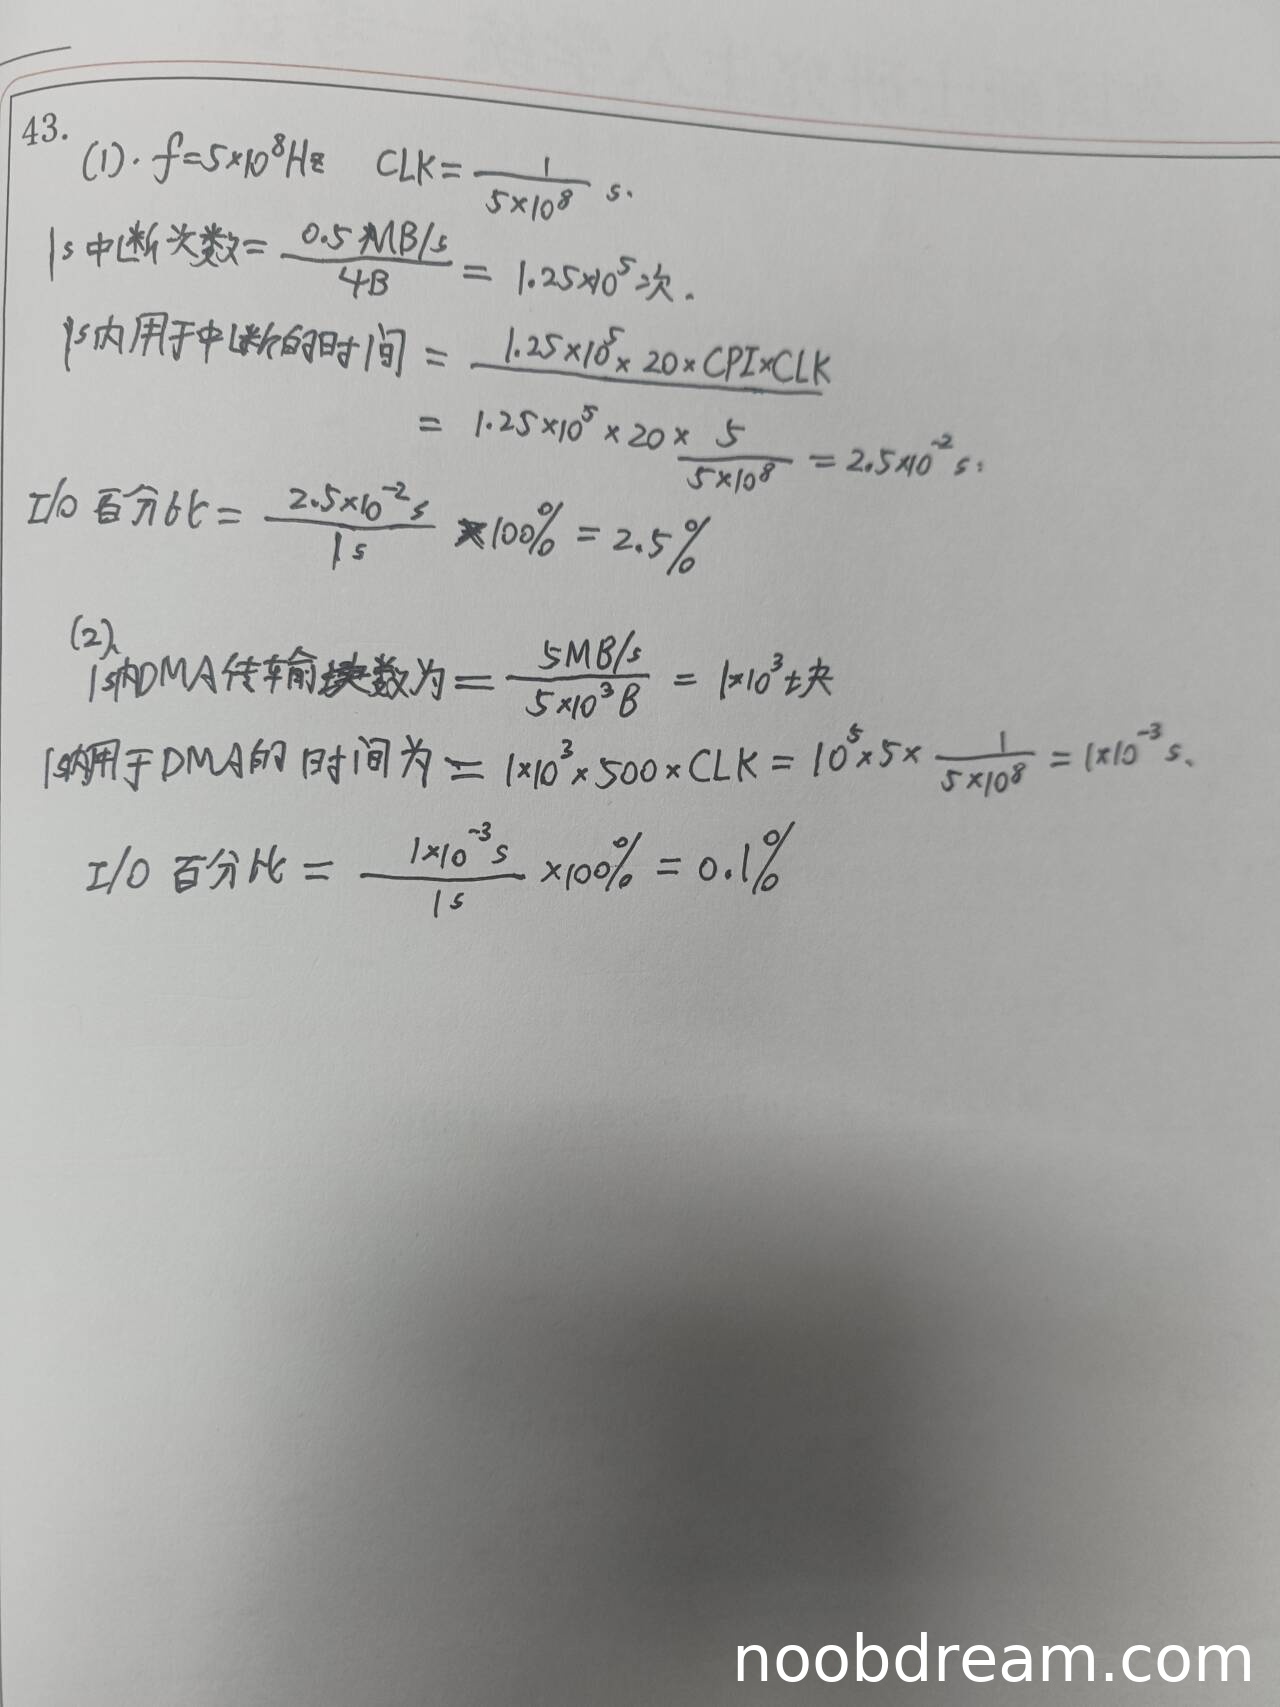 43.
(1). f=5×10⁸Hz CLK=1/(5×10⁸) s.
1s中断次数=0.5MB/s / 4B = 1.25×10⁵次.
1s内用于中断的时间 = 1.25×10⁵×20×CPI×CLK
= 1.25×10⁵×20×5/(5×10⁸) = 2.5×10⁻²s.
I/O百分比= 2.5×10⁻²s / 1s ×100% = 2.5%
(2).
1s内DMA传输块数为= 5MB/s / 5×10³B = 1×10³块
1s内用于DMA的时间为= 1×10³×500×CLK = 10⁵×5×1/(5×10⁸) = 1×10⁻³s.
I/O百分比= 1×10⁻³s / 1s ×100% = 0.1%
noobdream.com